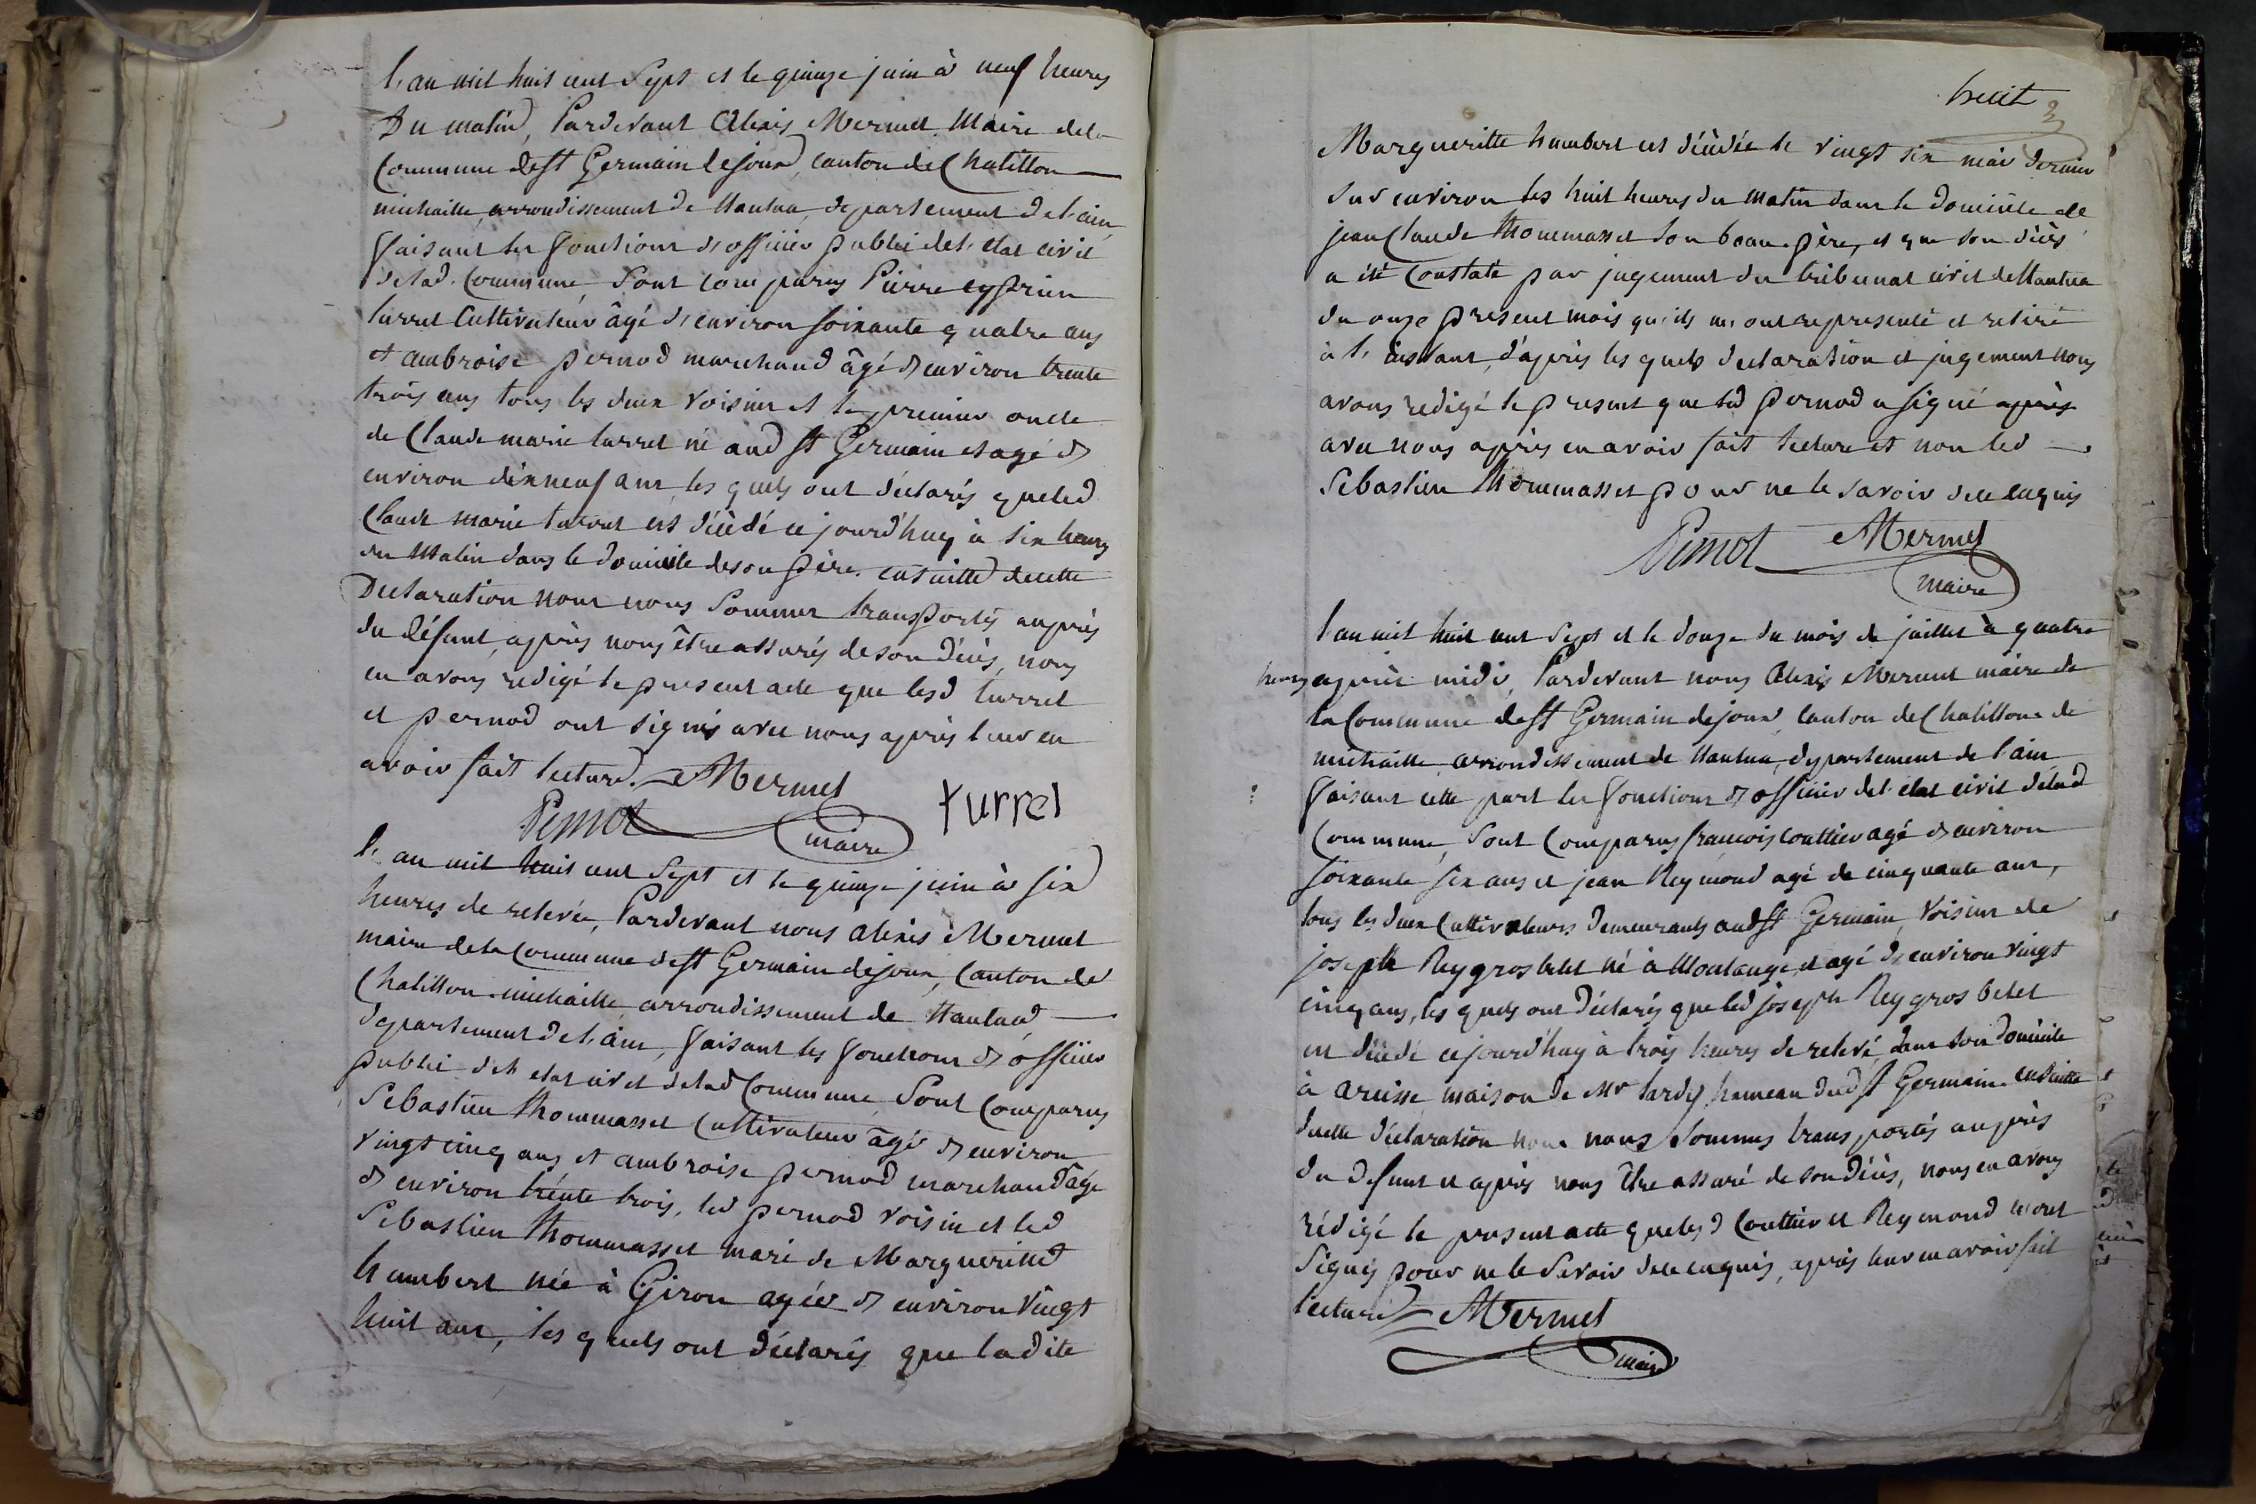 l'an mil huit cent sept et le quinze juin à neuf heures
Du matin, Pardevant Alexis Mermet Maire dela
Commune de St Germain de joux, canton de Chatillon
michaille, arrondissement de Nantua, departement de l'ain,
faisant les fonctions d'officier public de l'etat civil
de lad. Commune, Sont comparus Pierre cyprien
turrel Cultivateur âgé d'environ soixante quatre ans
et ambroise pernod marchand âgé d'environ trente
trois ans tous les deux voisins et le premier oncle
de Claude marie turrel né aud St Germain et agé d'
environ dixneuf ans les quels ont déclarés queled
Claude marie turrel est décédé ce jourd'huy à six heures
du Matin dans le domicile de son père. ensuitte de cette
Declaration nous nous Sommes transportés auprès
du défunt, après nous être assurés de son décès, nous
en avons redigé le present acte que lesd turrel
et pernod ont signés avec nous après leur en
avoir fait lecture. Mermet
Pernot maire turrel
l'an mil huit cent Sept et le quinze juin à six
heures de relevée, Pardevant nous alexis Mermet
maire de la Commune de St Germain de joux, Canton de
Chatillon michaille arrondissement de Nantua
departement de l'ain, faisant les fonctions d'officier
public de l'etat civil de lad Commune, Sont Comparus
Sebastien thommasset Cultivateur âgé d'environ
vingt cinq ans et ambroise pernod marchand âgé
d'environ trente trois, led pernod voisin et led
Sebastien thommasset mari de Margueritte
humbert née à Giron agée d'environ vingt
huit ans, les quels ont déclarés que ladite
huit
Margueritte humbert est décédée le vingt six mai dernier
sur environ les huit heures du matin dans le domicile de
jean Claude thommasset son beau-père, et que son décès
a été constaté par jugement du tribunal civil de Nantua
du onze present mois qu'ils m'ont representé et retiré
à l'instant, d'après les quels declaration et jugement nous
avons redigé le present que led pernod a signé après
avec nous après en avoir fait lecture et non led
Sébastien thommasset pour ne le savoir de ce enquis
Pernot Mermet
maire
l'an mil huit cent sept et le douze du mois de juillet à quatre
heures après midi, Pardevant nous Alexis Mermet maire de
la Commune de St Germain de joux, Canton de Chatillon de
michaille, arrondissement de Nantua, departement de l'ain
faisant cette part les fonctions d'officier de l'etat civil de lad
Commune, sont Comparus françois Couttier agé d'environ
soixante six ans et jean Reymond agé de cinquante ans,
tous les deux Cultivateurs demeurants aud St Germain, voisins de
joseph Reygrosbelet né à Montange, et agé d'environ vingt
cinq ans, les quels ont déclarés que led joseph Reygrosbelet
est décédé ce jourd'huy à trois heures de relevé dans son domicile
à arcisse maison de Mr tardy hameau dud St Germain. ensuitte
de cette déclaration nous nous sommes transportés auprès
du defunt et après nous être assuré de son décès, nous en avons
rédigé le present acte que lesd Couttier et Reymond n'ont
signés pour ne le savoir de ce enquis, après leur en avoir fait
lecture Mermet
maire